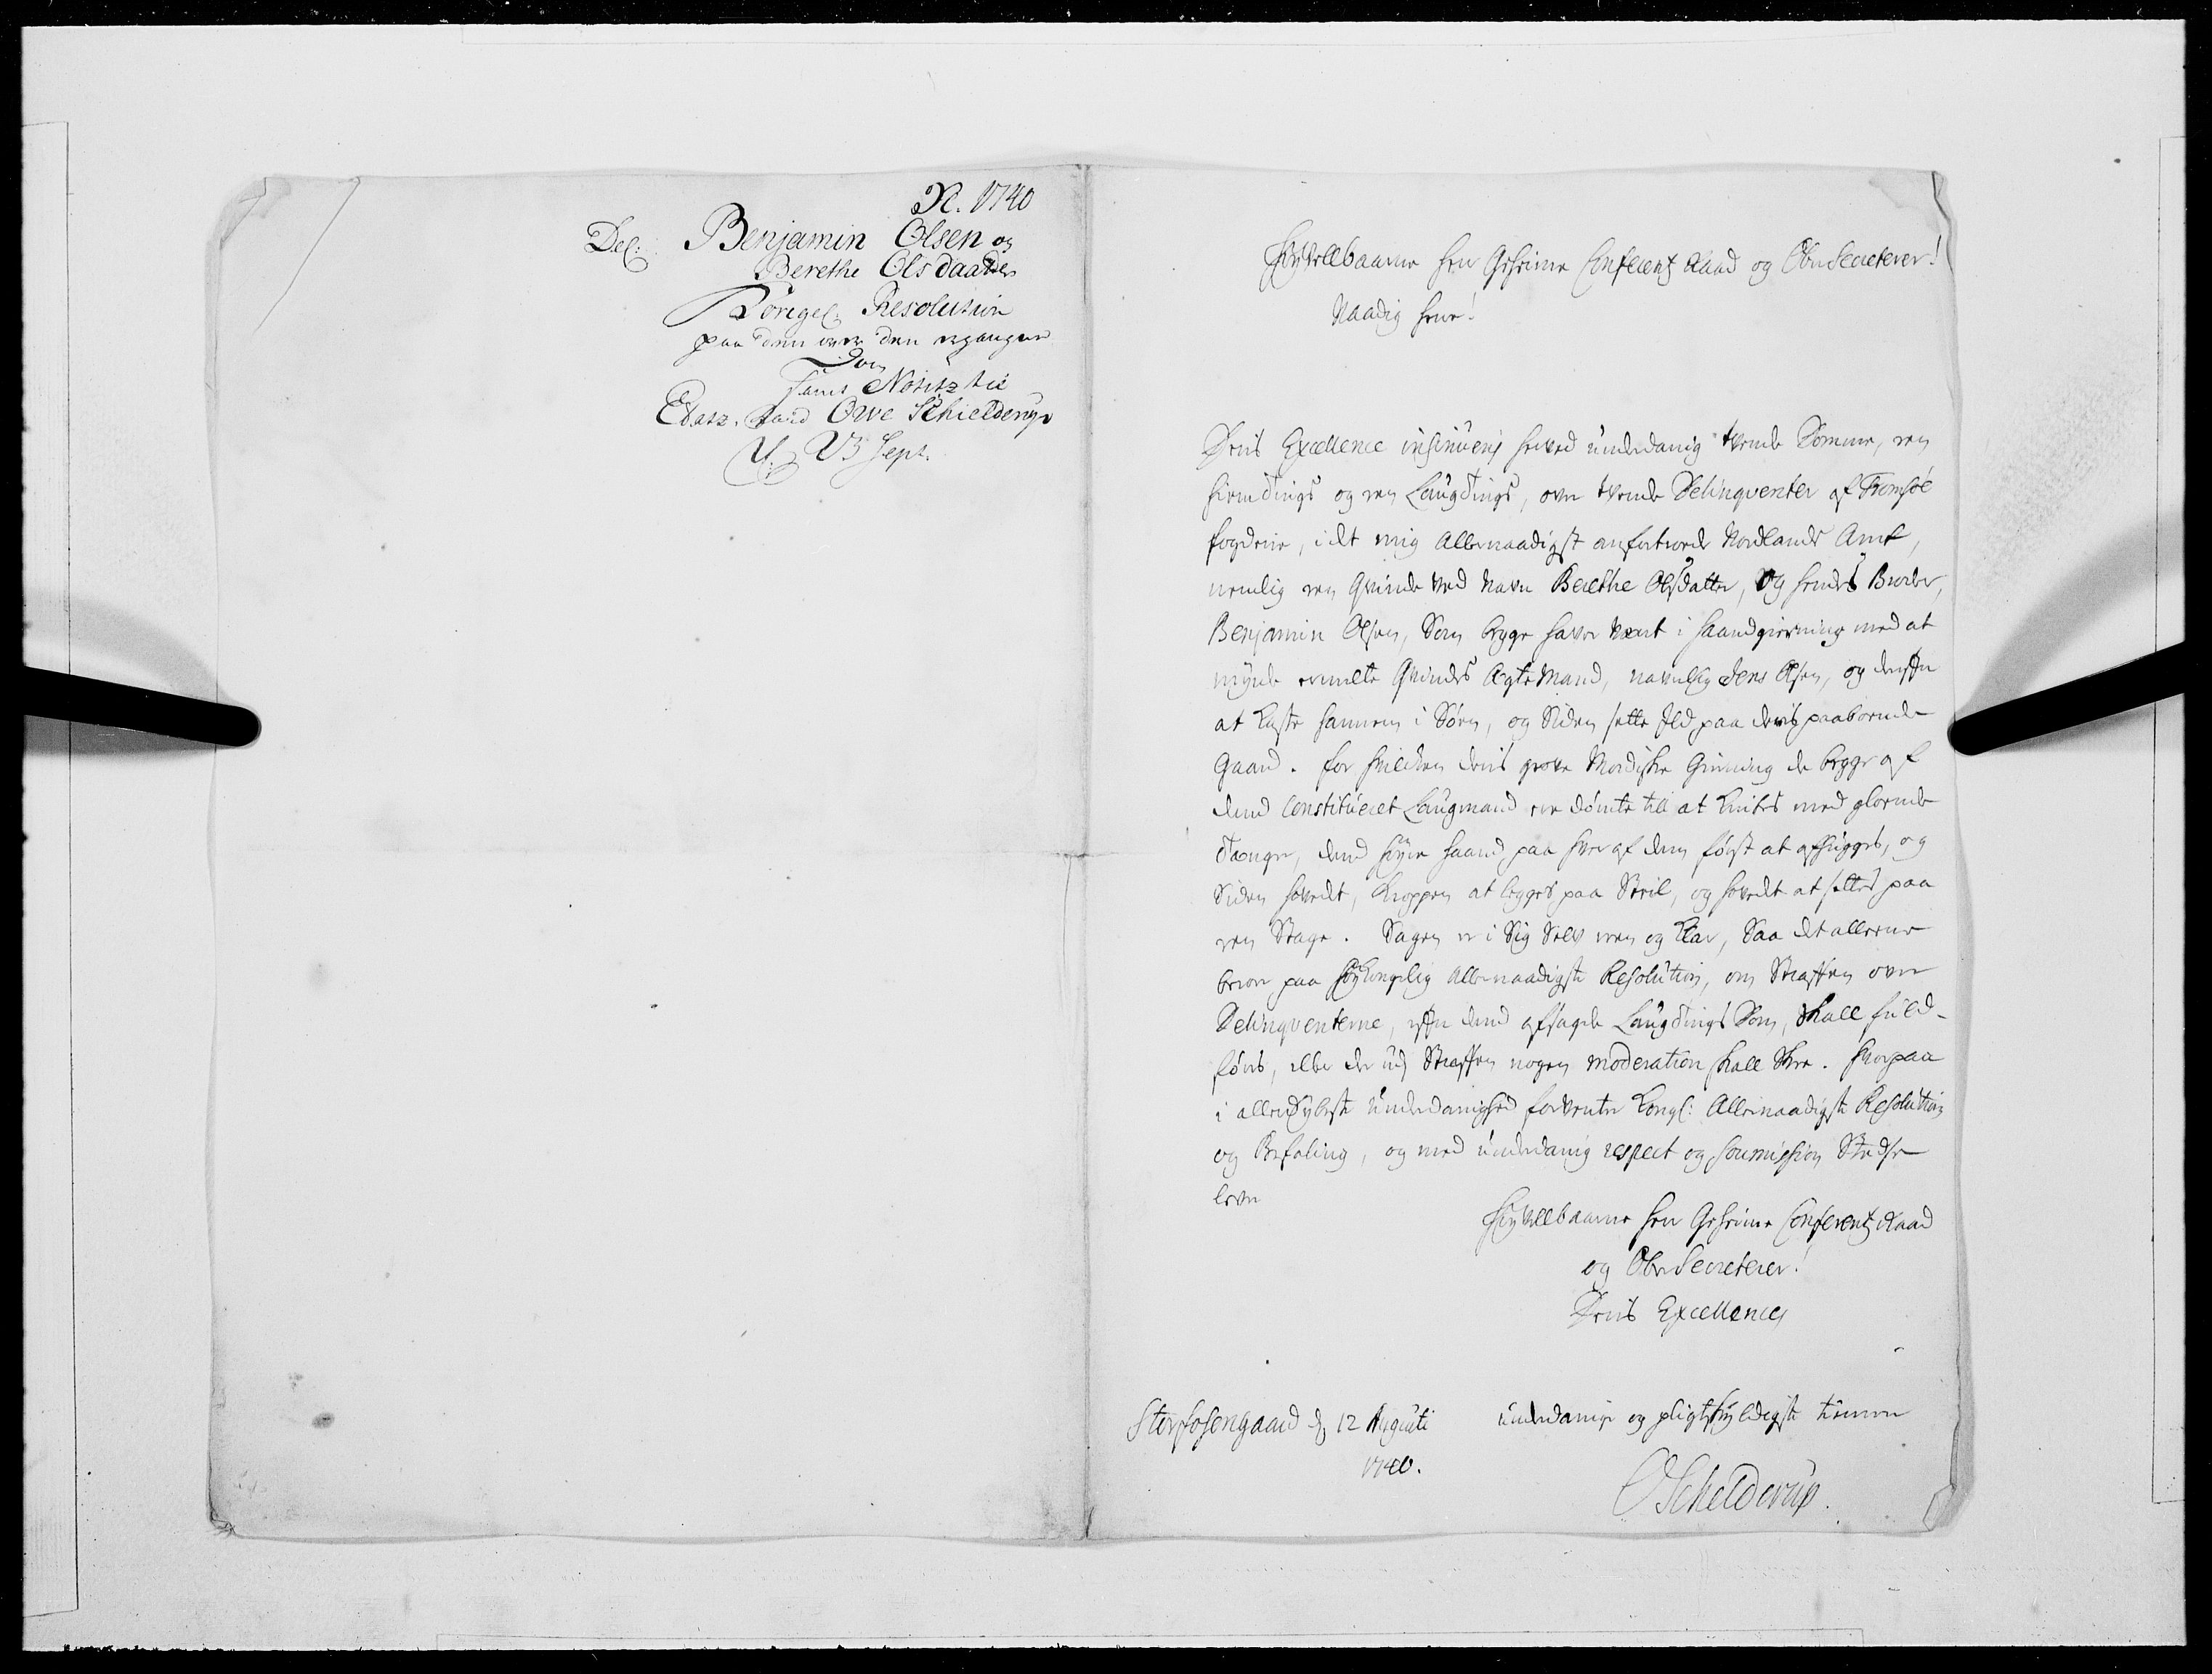 Xl. 1740
Del: Benjamin Olsen og
Berethe Olsdaatter
Kongel. Resolution
paa den over den ergangne
Dom
samt Notitz til
Etatz. Raad Owe Schielderup
V: 23 Sept.
Høyvelbaarne Herr Geheime Conferentz Raad og OberSecreterer!
Naadig Herre!
Deris Excellence insinueris herved underdanig tvende Domme, een
Hiemtings og een Laugtings, over tvende Delinqventer af Tromsøe
fogderie, i det mig Allernaadigst anfortroede Nordlands Amt,
nemlig een Qvinde ved Navn Berethe Olsdatter, og hendes Broder,
Benjamin Olsen, Som begge haver været i Haandgierning med at
myrde ermelte Qvindes Ægte Mand, navnlig Jens Olsen, og derefter
at kaste hannem i Søen, og Siden sette Ild paa deris paaboende
Gaard. for hvilcken deris grove Mordiske Gierning de begge af
dend Constitueret Laugmand ere dømte till at knibes med gloende
Tænger, dend høyre Haand paa hver af dem først at afhugges, og
Siden hovedt, Kroppen at legges paa Steil, og hovedt at settes paa
een Stage. Sagen er i Sig Selv reen og klar, Saa det alleene
beroer paa Høykongelig Allernaadigste Resolution, om Straffen over
Delinqventerne, efter dend afsagde Laugtings Dom, skall fuld-
føris, eller der udj Straffen nogen moderation skall skee. Hvorpaa
i allerdybeste Underdanighed forventer Kongl: Allernaadigste Resolution
og Befaling, og med underdanig respect og soumission Stedse
lever
Høyvelbaarne Herr Geheime Conferentz Raad
og OberSecreterer!
Deris Excellences
Storfosengaard d 12 Augusti
1740.
underdanige og pligtskyldigste tienere
O Schelderup.